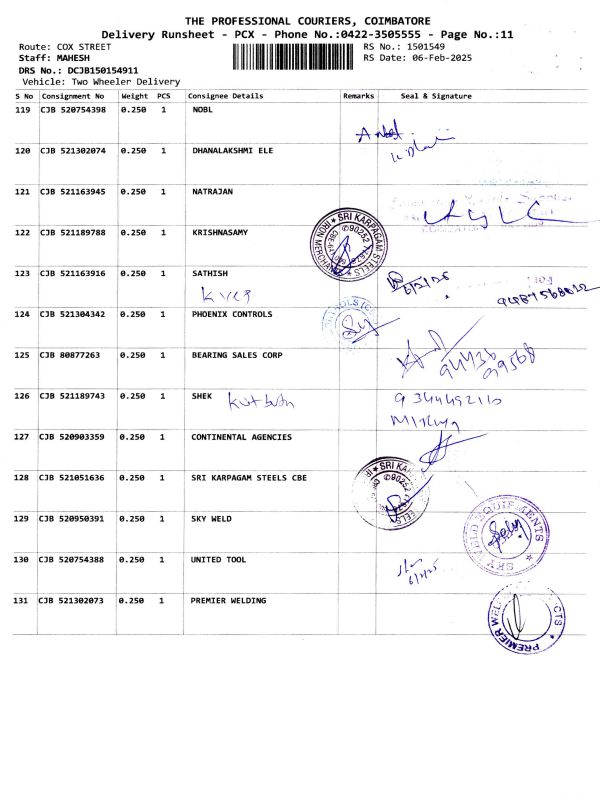 THE PROFESSIONAL COURIERS, COIMBATORE
Delivery Runsheet - PCX - Phone No.:0422-3505555 - Page No.:11
Route: COX STREET RS No.: 1501549
Staff: MAHESH RS Date: 06-Feb-2025
DRS No.: DCJB150154911
Vehicle: Two Wheeler Delivery
S No Consignment No Weight PCS Consignee Details Remarks Seal & Signature
119 CJB 520754398 0.250 1 NOBL
120 CJB 521302074 0.250 1 DHANALAKSHMI ELE
121 CJB 521163945 0.250 1 NATRAJAN
122 CJB 521189788 0.250 1 KRISHNASAMY
SRI KARPAGAM STEELS
123 CJB 521163916 0.250 1 SATHISH
6/2/25
124 CJB 521304342 0.250 1 PHOENIX CONTROLS
125 CJB 80877263 0.250 1 BEARING SALES CORP
126 CJB 521189743 0.250 1 SHEK
9344492110
127 CJB 520903359 0.250 1 CONTINENTAL AGENCIES
128 CJB 521051636 0.250 1 SRI KARPAGAM STEELS CBE
129 CJB 520950391 0.250 1 SKY WELD
SKY WELD EQUIPMENTS
130 CJB 520754388 0.250 1 UNITED TOOL
6/2/25
131 CJB 521302073 0.250 1 PREMIER WELDING
PREMIER WELD